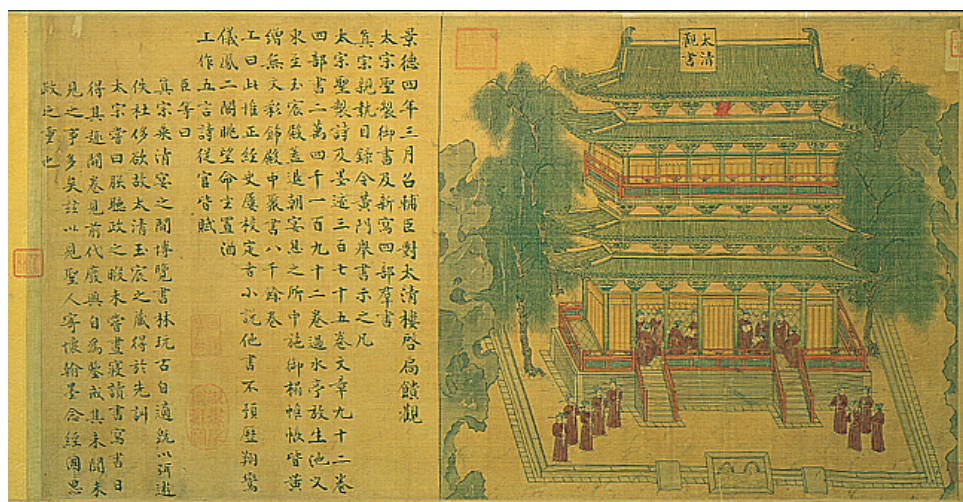 太清
觀書
景德四年三月召輔臣對太清樓啓扃鐍觀
太宗聖製御書及新寫四部羣書
真宗親執目錄令黃門舉書示之凡
太宗聖製詩及墨迹三百七十五卷文章九十二卷
四部書二萬四千一百九十二卷過水亭放生池又
東至玉宸殿蓋退朝宴息之所中施御榻帷帳皆黃
繒無文彩飾殿中聚書八千餘卷
上曰此惟正經史屢校定者小說他書不預歷翔鸞
儀鳳二閣眺望命坐置酒
上作五言詩從官皆賦
臣等曰
真宗乘清宴之間博覽書林玩古自適旣以
佚杜侈欲故太清玉宸之藏得於先訓
太宗嘗曰朕聽政之暇未嘗晝寢讀書寫書日
得其趣開卷見前代廢興自為鑒戒其未聞未
見之事多矣玆以見聖人寄懷翰墨念經國思
政之重也